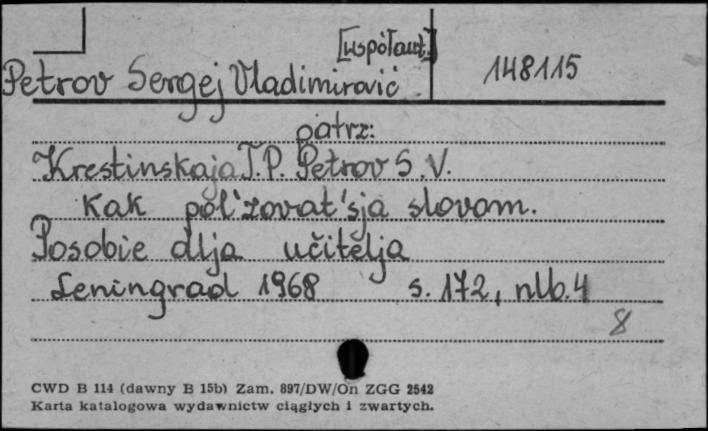 [współaut.]
Petrov Sergej Vladimirovič 148115
patrz:
Krestinskaja T.P. Petrov S.V.
Kak pol'zovat'sja slovom.
Posobie dlja učitelja
Leningrad 1968 s. 172, nlb. 4
8
CWD B 114 (dawny B 15b) Zam. 897/DW/On ZGG 2542
Karta katalogowa wydawnictw ciągłych i zwartych.